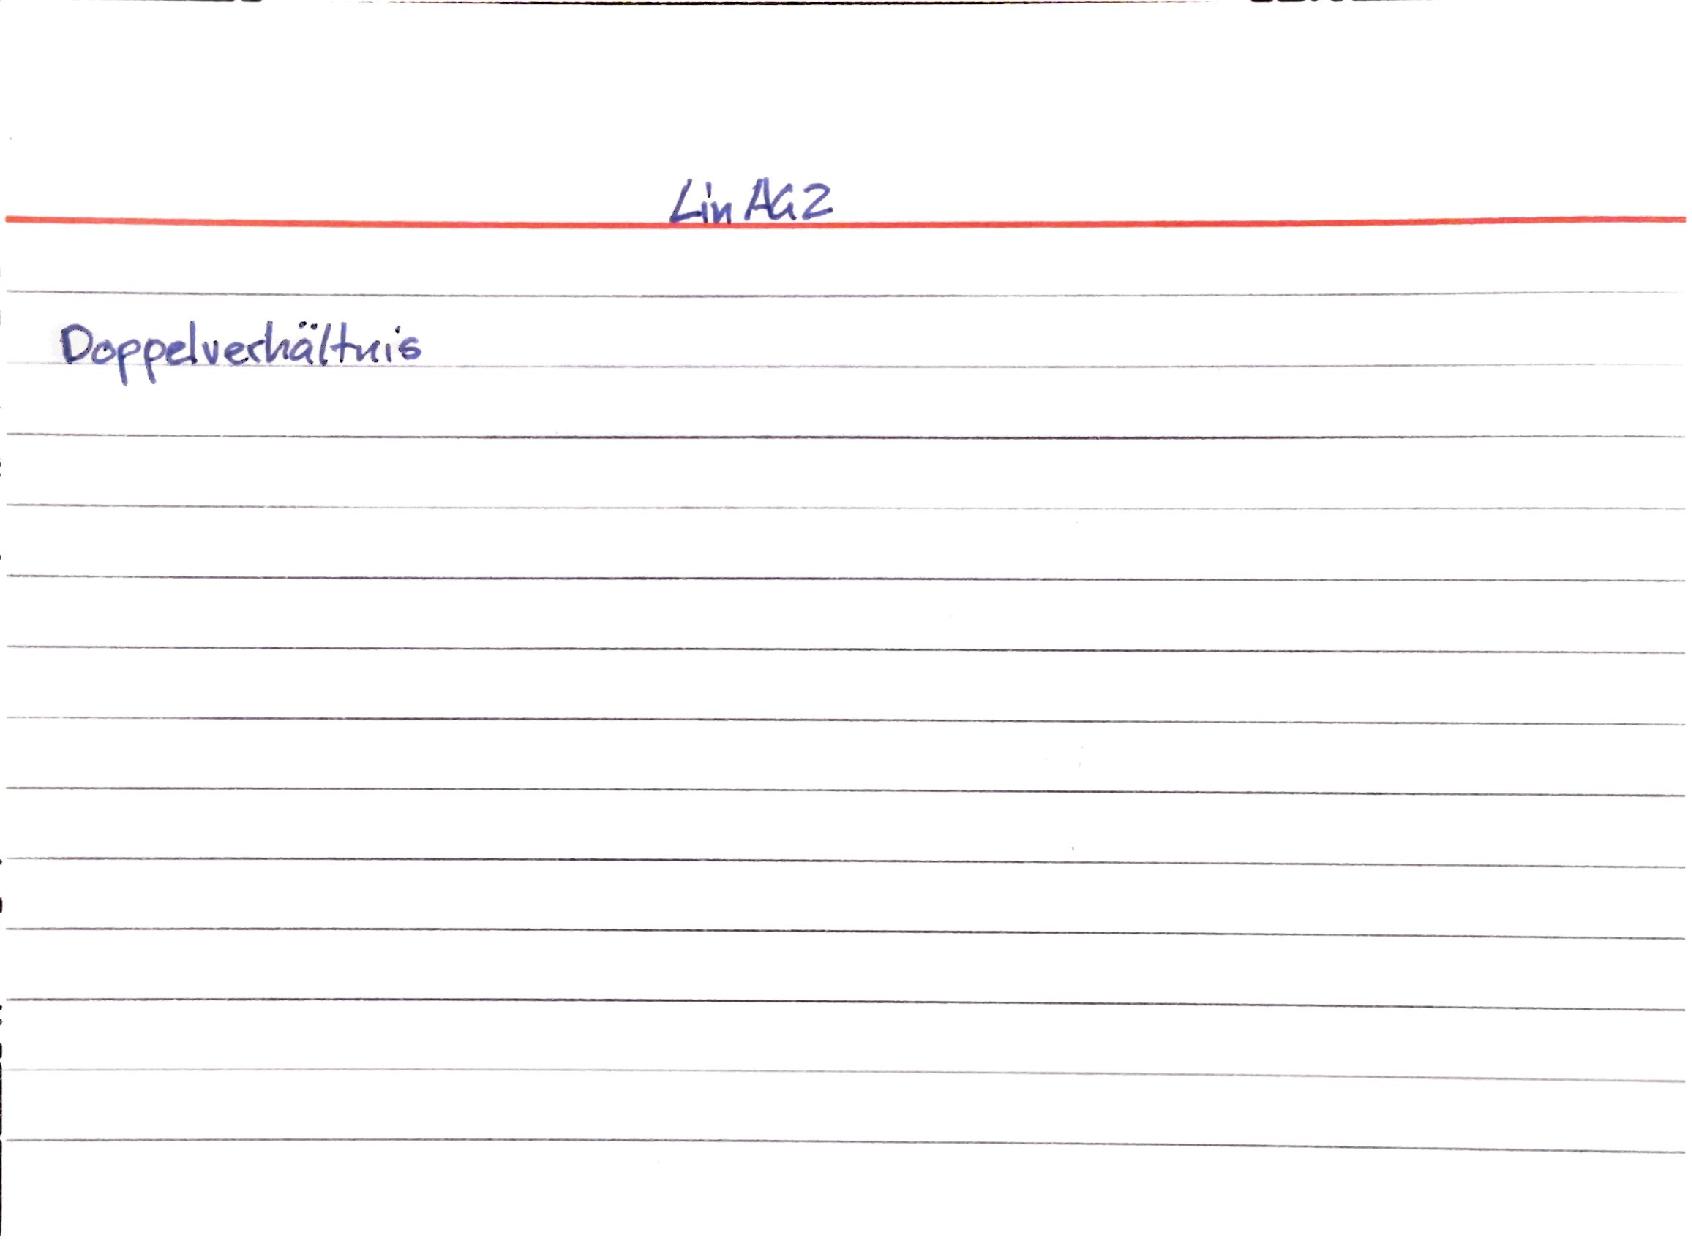 LinAG2
Doppelverhältnis